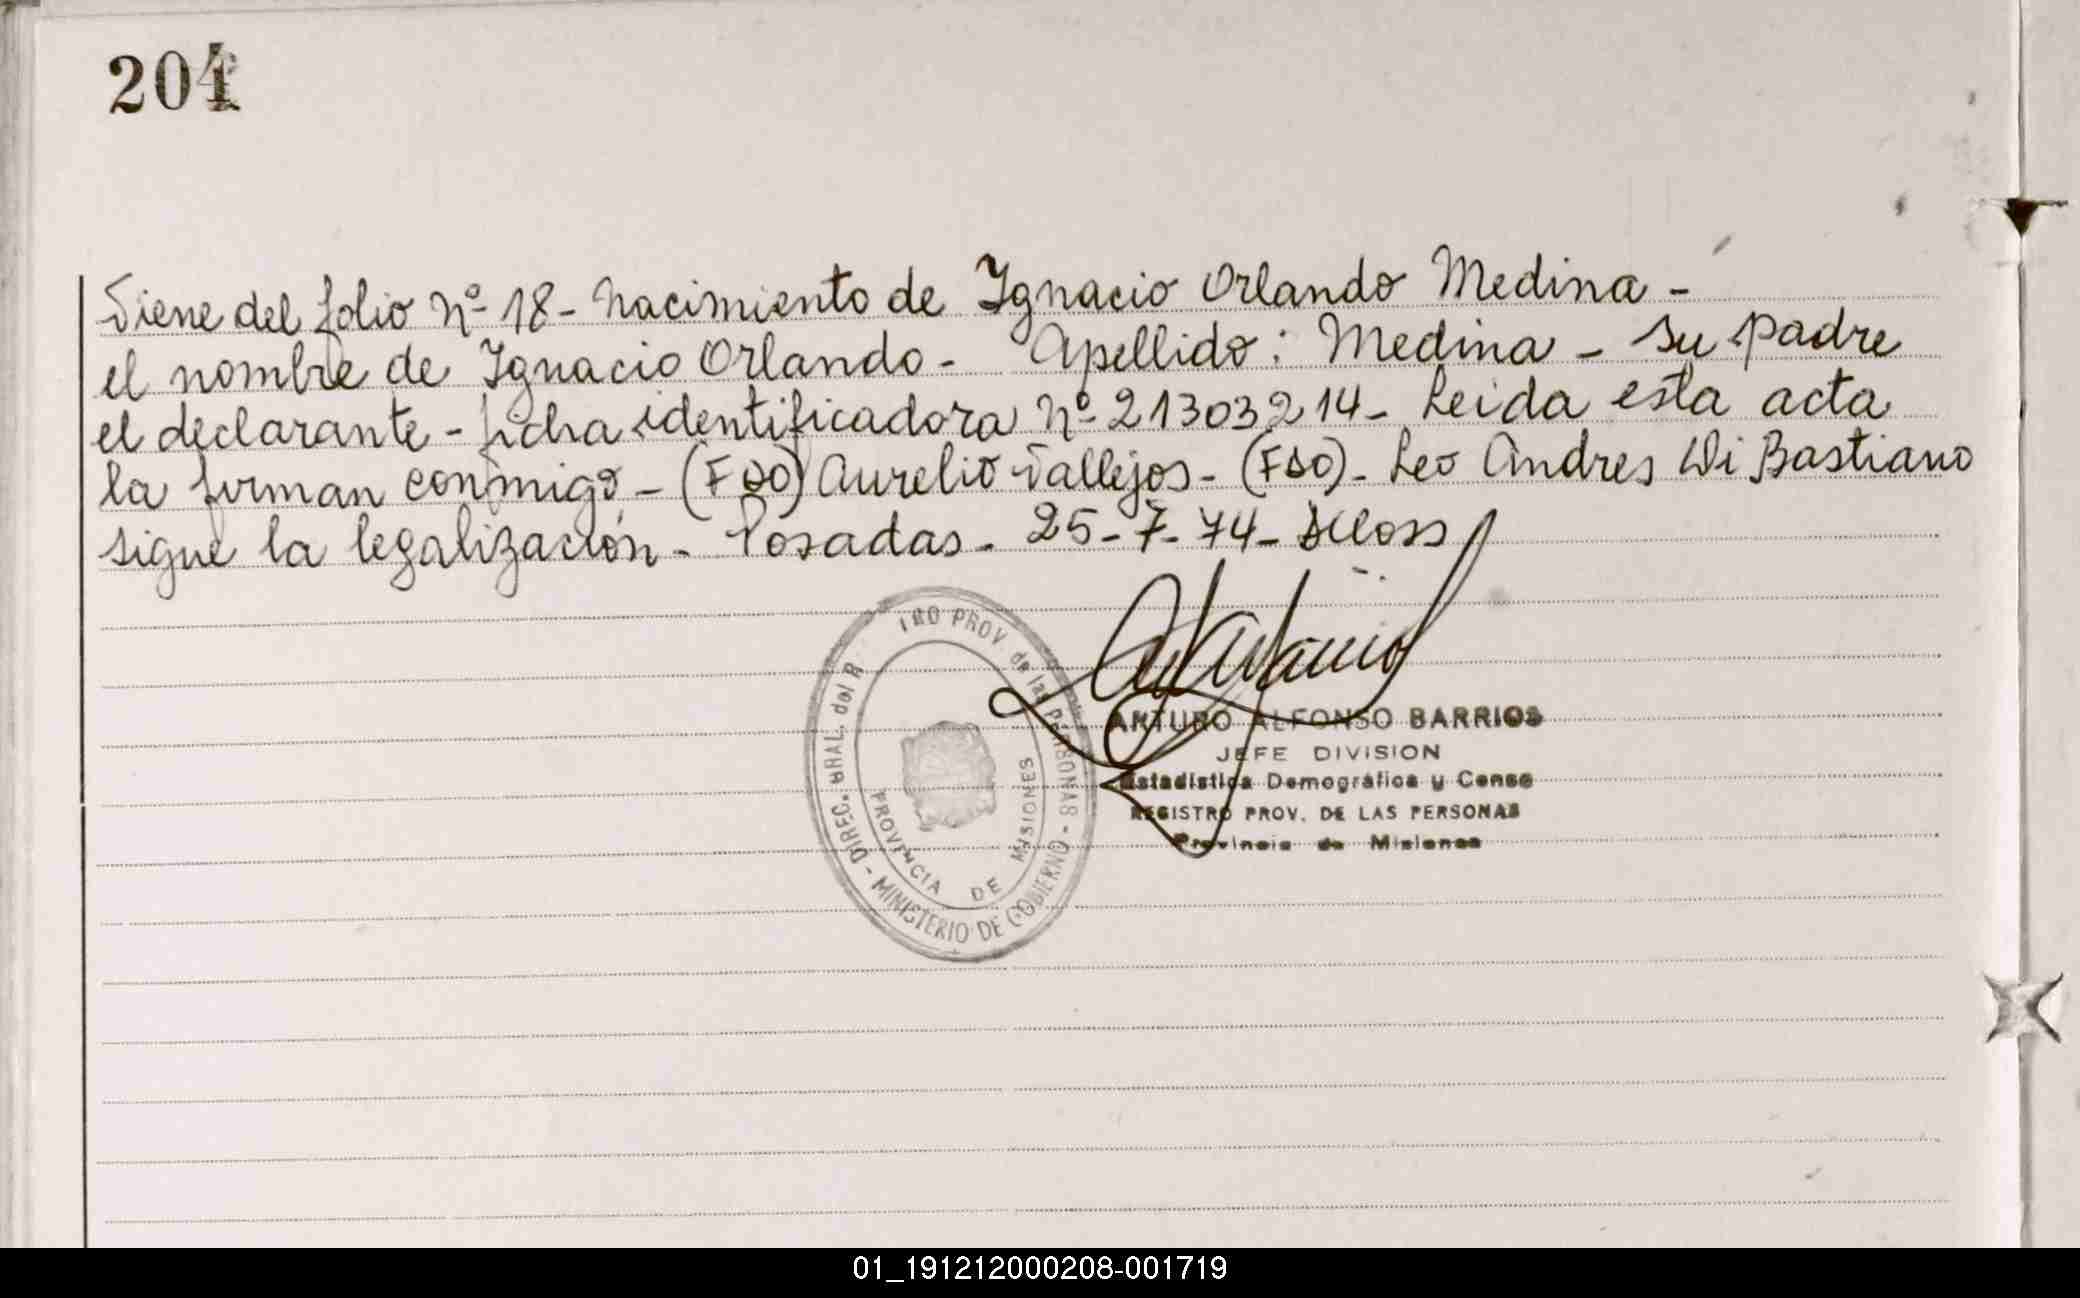 204
Viene del folio Nº 18 - Nacimiento de Ignacio Orlando Medina -
el nombre de Ignacio Orlando - Apellido: Medina - su padre
el declarante - ficha identificadora Nº 21303214 - Leida esta acta
la firman conmigo - (FDO) Aurelio Vallejos - (FDO) - Leo Andres Di Bastiano
sigue la legalización - Posadas - 25-7-74 -
DIREC. GRAL. del R PROV de las PERSONAS - MINISTERIO DE GOBIERNO
PROVINCIA DE MISIONES
ARTURO ALFONSO BARRIOS
JEFE DIVISION
Estadistica Demográfica y Censo
REGISTRO PROV. DE LAS PERSONAS
Provincia de Misiones
01_191212000208-001719